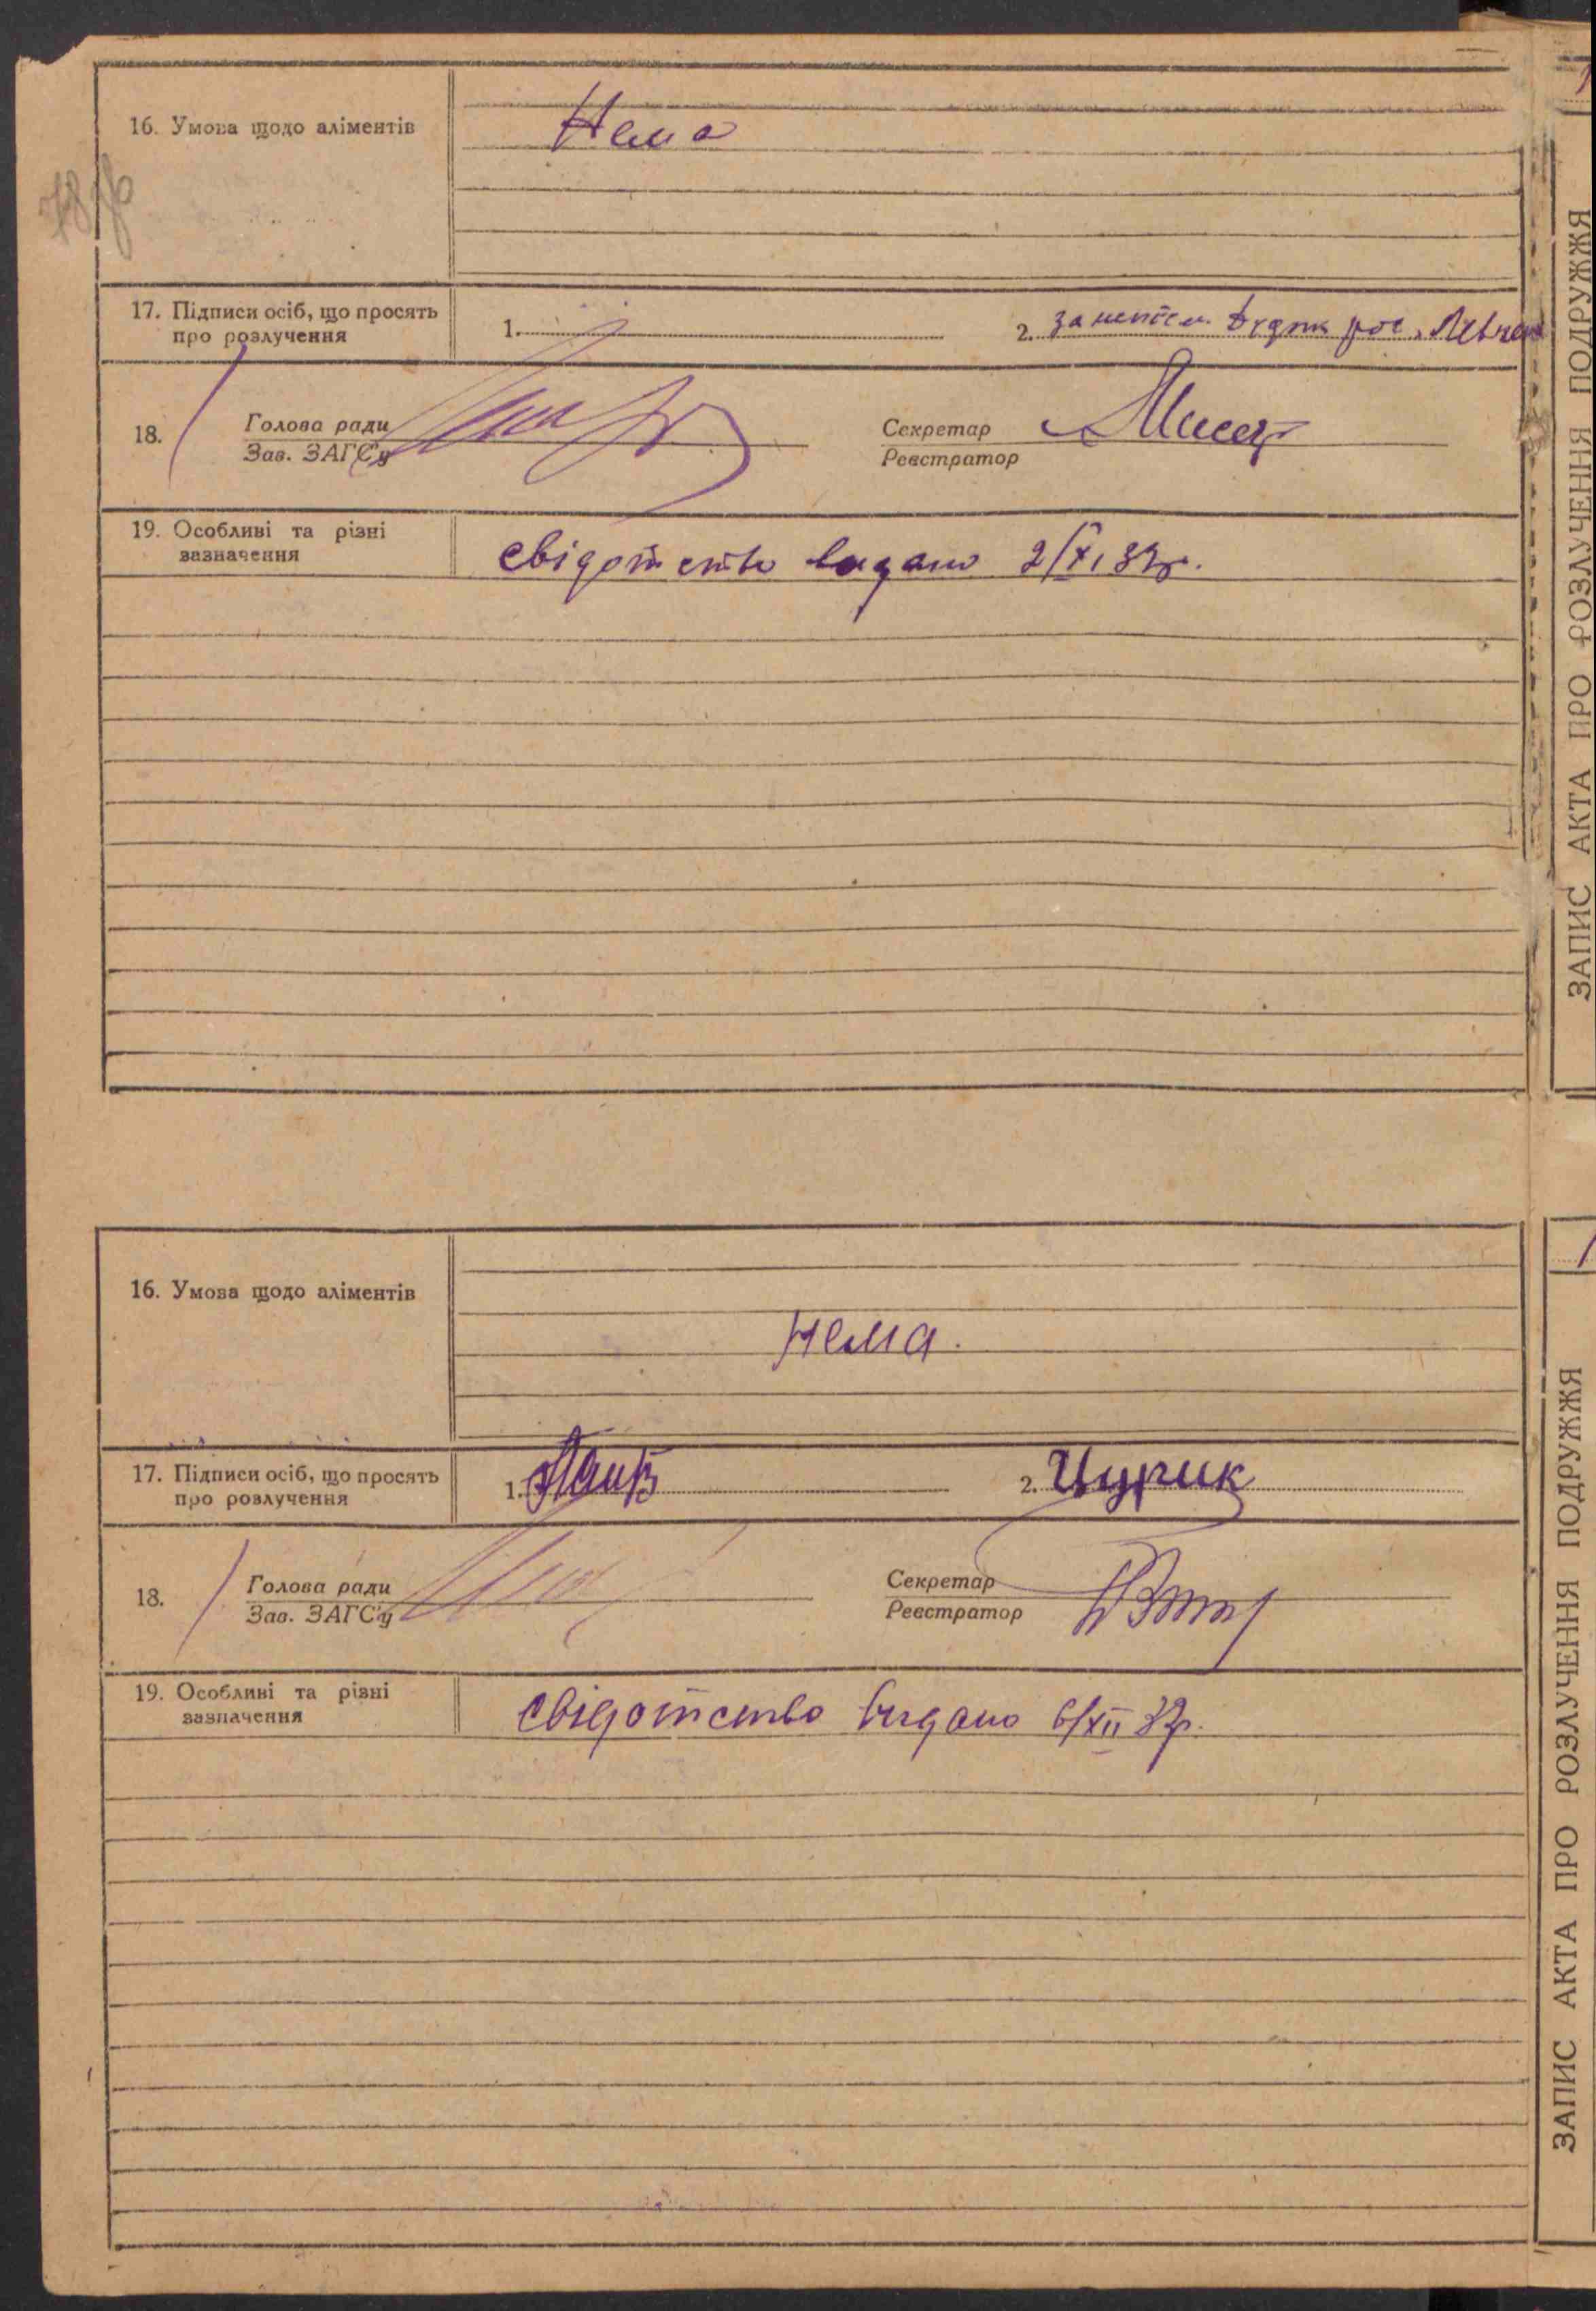 16. Умова щодо аліментів
Нема
17. Підписи осіб, що просять
про розлучення
1.
2. за
18.
Голова ради
Зав. ЗАГС'у
Секретар
Реєстратор
19. Особливі та різні
зазначення
свідотство видано 2/XI 32р.
16. Умова щодо аліментів
нема.
17. Підписи осіб, що просять
про розлучення
1.
2. Цурик
18.
Голова ради
Зав. ЗАГС'у
Секретар
Реєстратор
19. Особливі та різні
зазначення
свідотство видано 6/XII 32р.
ЗАПИС АКТА ПРО РОЗЛУЧЕННЯ ПОДРУЖЖЯ
ЗАПИС АКТА ПРО РОЗЛУЧЕННЯ ПОДРУЖЖЯ